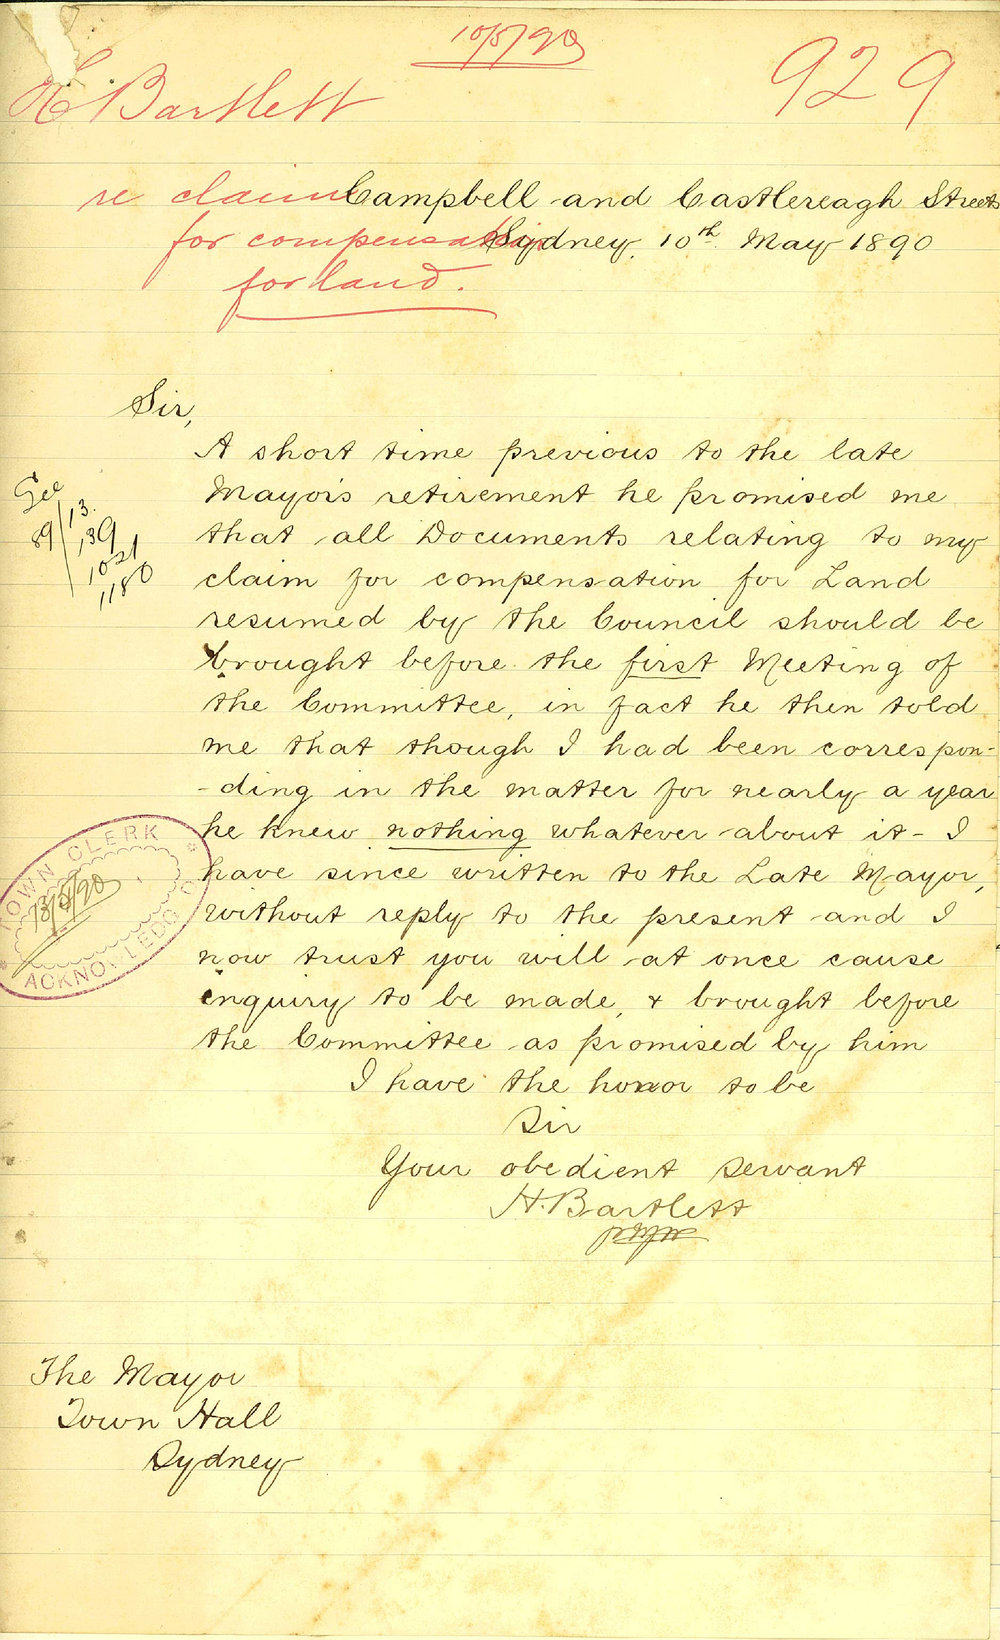 10/5/90
929
H Bartlett
re claim
for compensation
for land.
Campbell and Castlereagh Streets
Sydney, 10th May 1890
Sir,
A short time previous to the late
Mayor's retirement he promised me
that all Documents relating to my
claim for compensation for Land
resumed by the Council should be
brought before the first Meeting of
the Committee, in fact he then told
me that though I had been correspon-
-ding in the matter for nearly a year
he knew nothing whatever about it - I
have since written to the Late Mayor,
without reply to the present and I
now trust you will at once cause
enquiry to be made, & brought before
the Committee as promised by him
I have the honor to be
Sir
Your obedient servant
H. Bartlett
See
89/13.
139
1021
1180
TOWN CLERK
13/5/90
ACKNOWLEDGED
The Mayor
Town Hall
Sydney